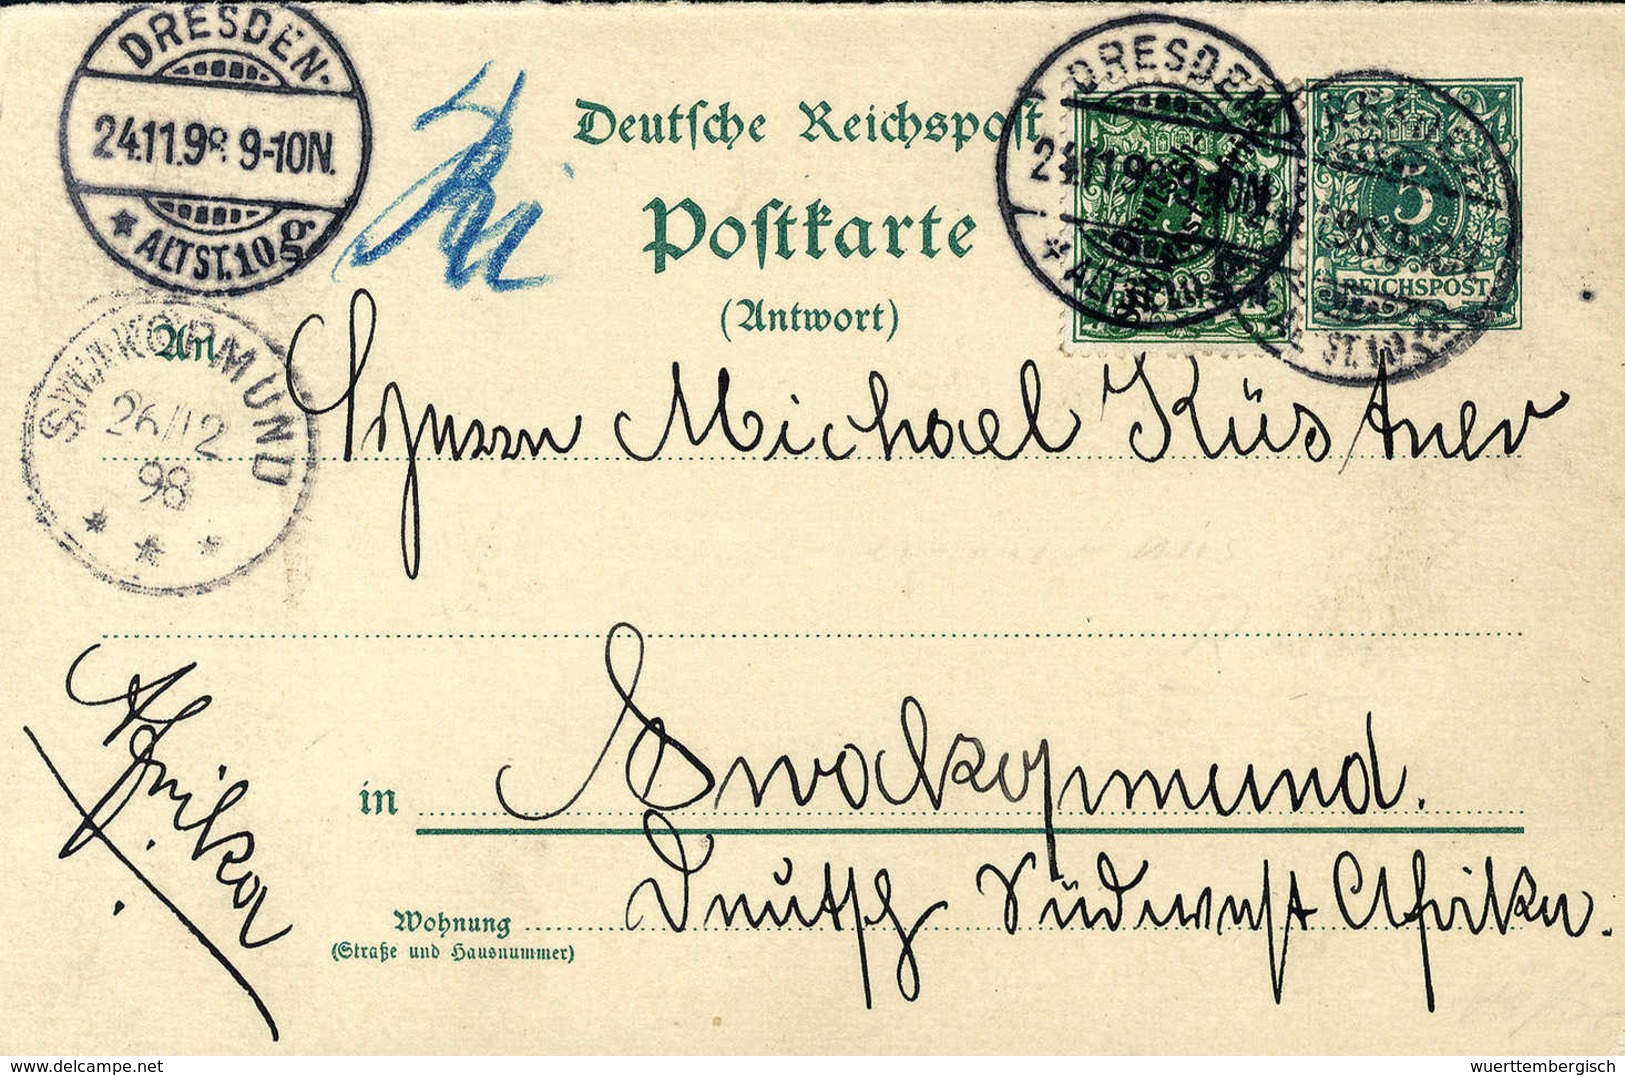 DRESDEN-
24.11.98 9-10N.
* ALTST.10 g
Deutsche Reichspost
Postkarte
(Antwort)
DRESDEN
24.11.98 9-10N.
* ALTST.10
5
REICHSPOST
ST.10
An
SWAKOPMUND
26/12
98
Herrn Michael Küstner
in Swakopmund.
Wohnung Deutsch Südwest Afrika.
(Straße und Hausnummer)
Afrika
wuerttembergisch